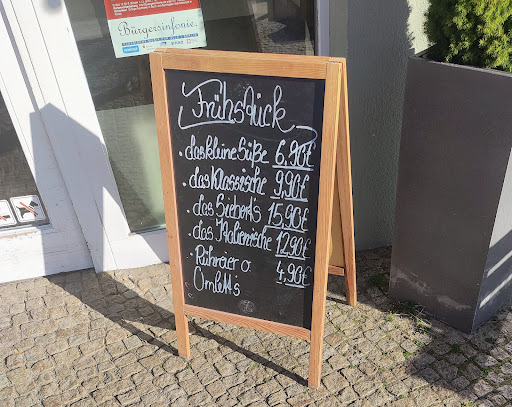 Bürgersinfonie.
Frühstück
· das kleine Süße 6,90€
· das Klassische 9,90€
· das Siebert's 15,90€
· das Italienische 12,90€
· Rühreier o. 4,90€
Omlett's